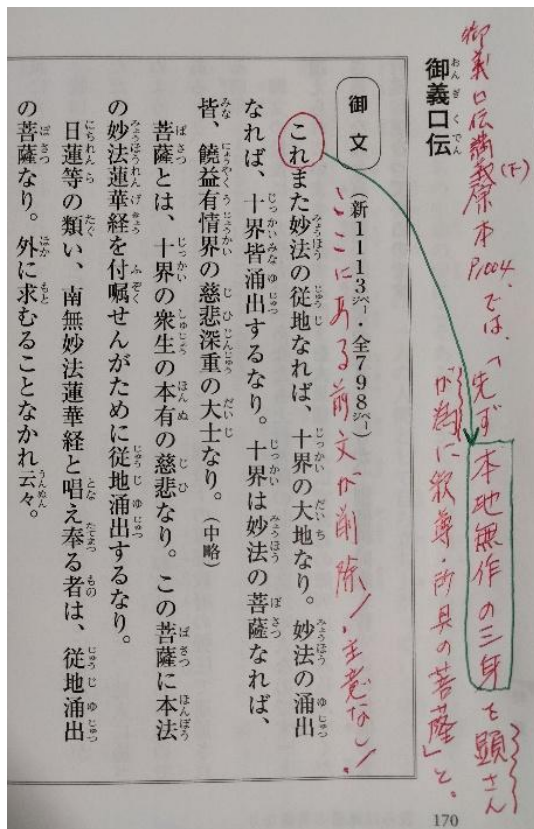 御義口伝講義原本(下)
P1004.では、「先ず本地無作の三身を顕さん
が為に釈尊・所具の菩薩」と。
御義口伝
おんぎくでん
御文
(新1113ページ・全798ページ)
ここにある前文が削除!主意なし!
これまた妙法の従地なれば、十界の大地なり。妙法の涌出
なれば、十界皆涌出するなり。十界は妙法の菩薩なれば、
皆、饒益有情界の慈悲深重の大士なり。(中略)
菩薩とは、十界の衆生の本有の慈悲なり。この菩薩に本法
の妙法蓮華経を付嘱せんがために従地涌出するなり。
日蓮等の類い、南無妙法蓮華経と唱え奉る者は、従地涌出
の菩薩なり。外に求むることなかれ云々。
170